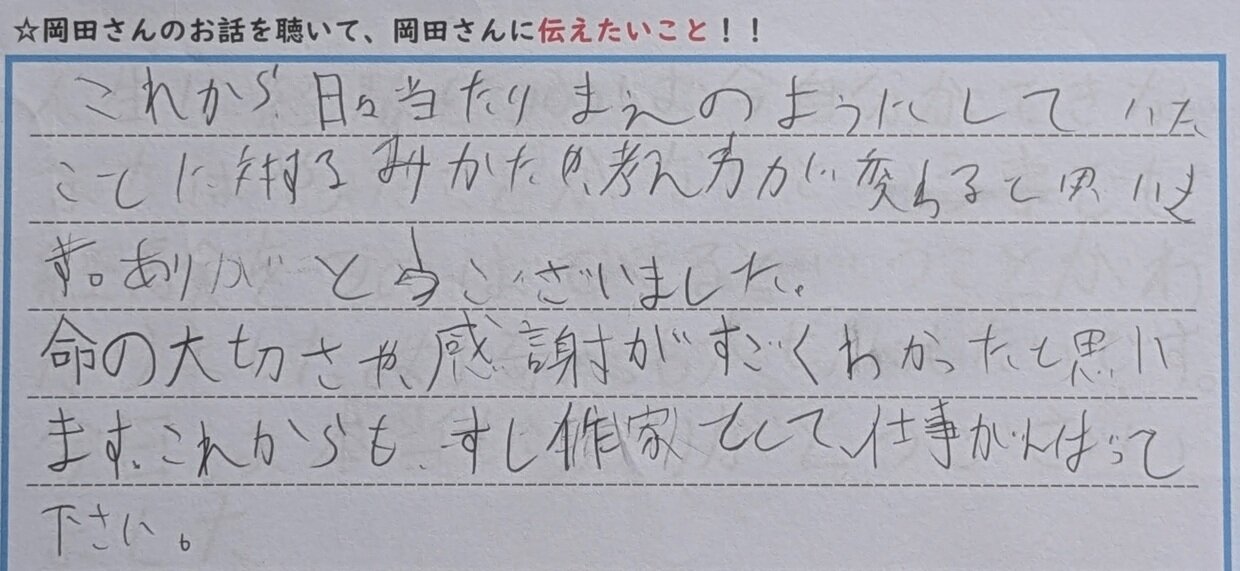 ☆岡田さんのお話を聴いて、岡田さんに伝えたいこと！！
これから日々当たりまえのようにして いた
ことに対するみかたや、考え方が変わると思いま
す。ありがとうございました。
命の大切さや、感謝がすごくわかったと思い
ます。これからも、すし作家として、仕事がんばって
下さい。